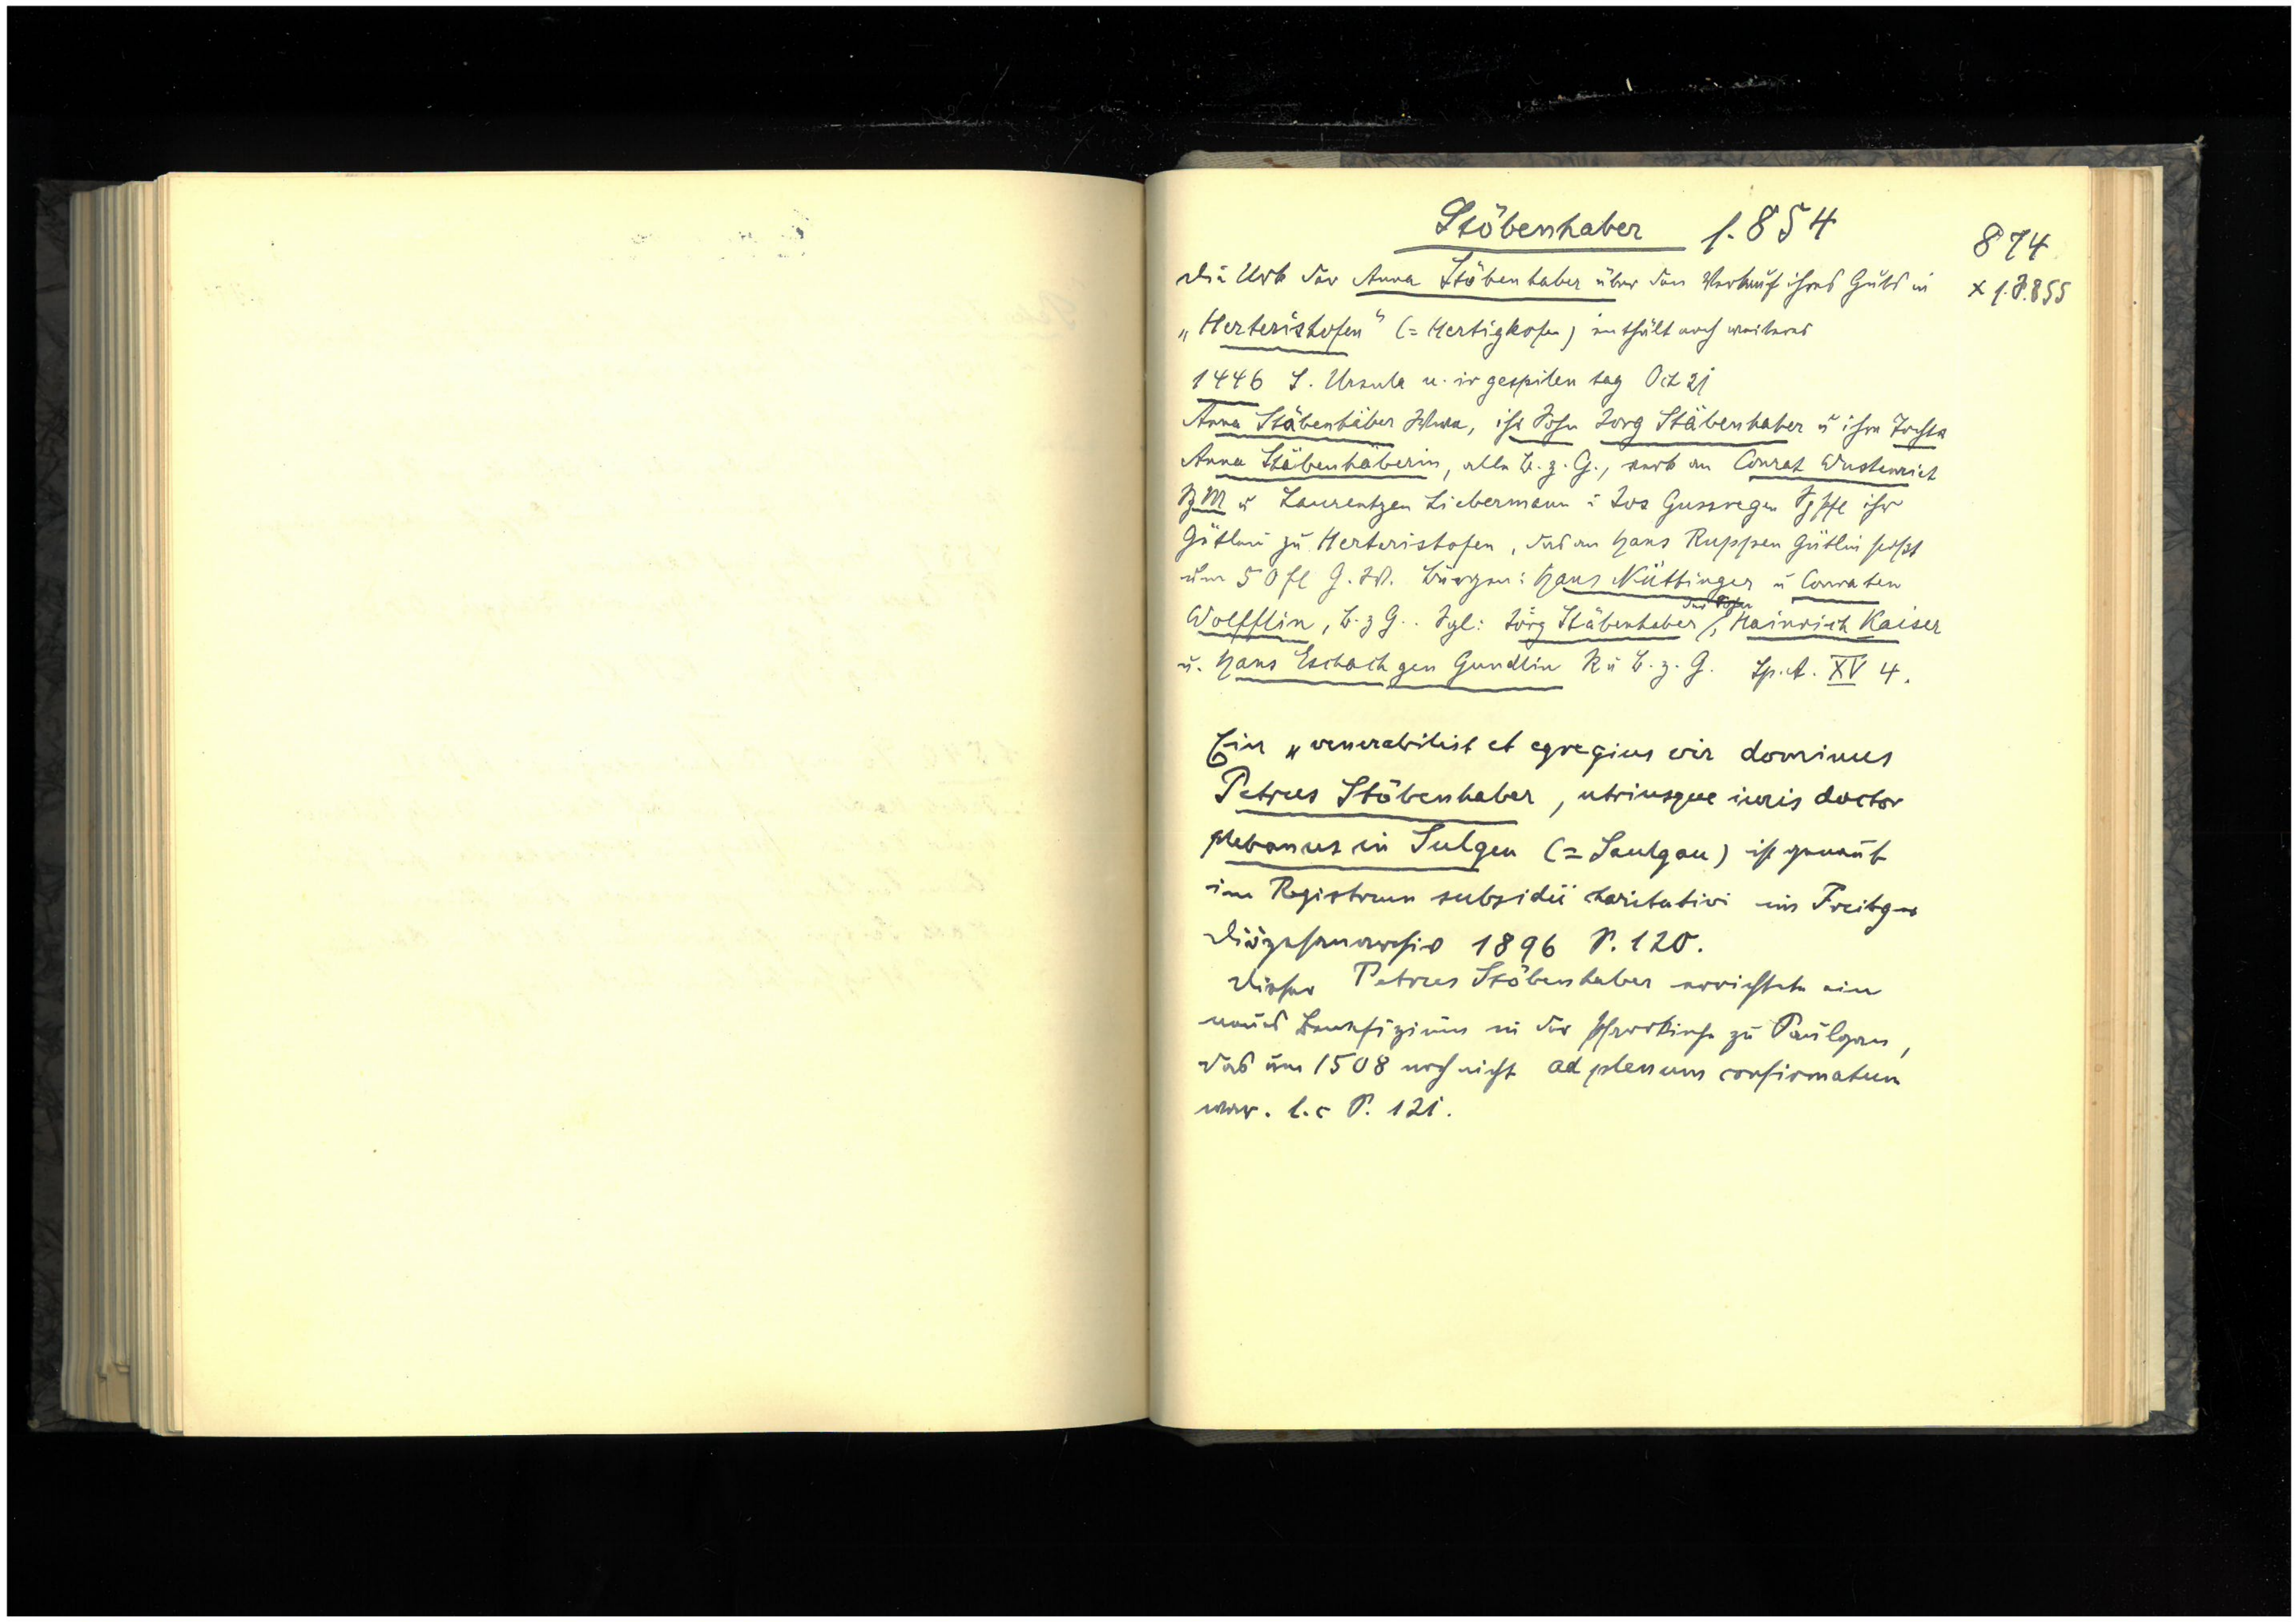 Stöbenhaber s. 854
874
Die Urk der Anna Stöbenhaber über den Verkauf ihres Guts in
x s. S. 855
„Herterishofen" (= Hertigkofen) enthält noch weiteres
1446 S. Ursula u. ir gespilen tag Oct 21
Anna Stäbenhäber Wwe, ihr Sohn Jorg Stäbenhaber u ihre Tochter
Anna Stäbenhäberin, alle B. z. G., verk an Conrat Wustenriet
BM u Laurentzen Liebermann u Jos Gussregen Spfl ihr
Gütlein zu Herterishofen, das an Hans Ruppen Gütlin stosst
um 50 fl G. W. Bürgen: Hans Nüttinger u Conraten
Wolfflin, B. z G.. Sgl: Jörg Stäbenhaber, Hainrich Kaiser
u. Hans Eschach gen Gundlin R u B. z. G. Sp. A. XV 4.
Ein „venerabilist et egregius vir dominus
Petrus Stöbenhaber, utriusque iuris doctor
plebanus in Sulgen (= Saulgau) ist genannt
im Registrum subsidii charitativi im Freibger
Diözesanarchiv 1896 S. 120.
Dieser Petrus Stöbenhaber errichtete ein
neues Benefizium in der Pfarrkirche zu Saulgau,
das um 1508 noch nicht ad plenum confirmatum
war. l. c S. 121.